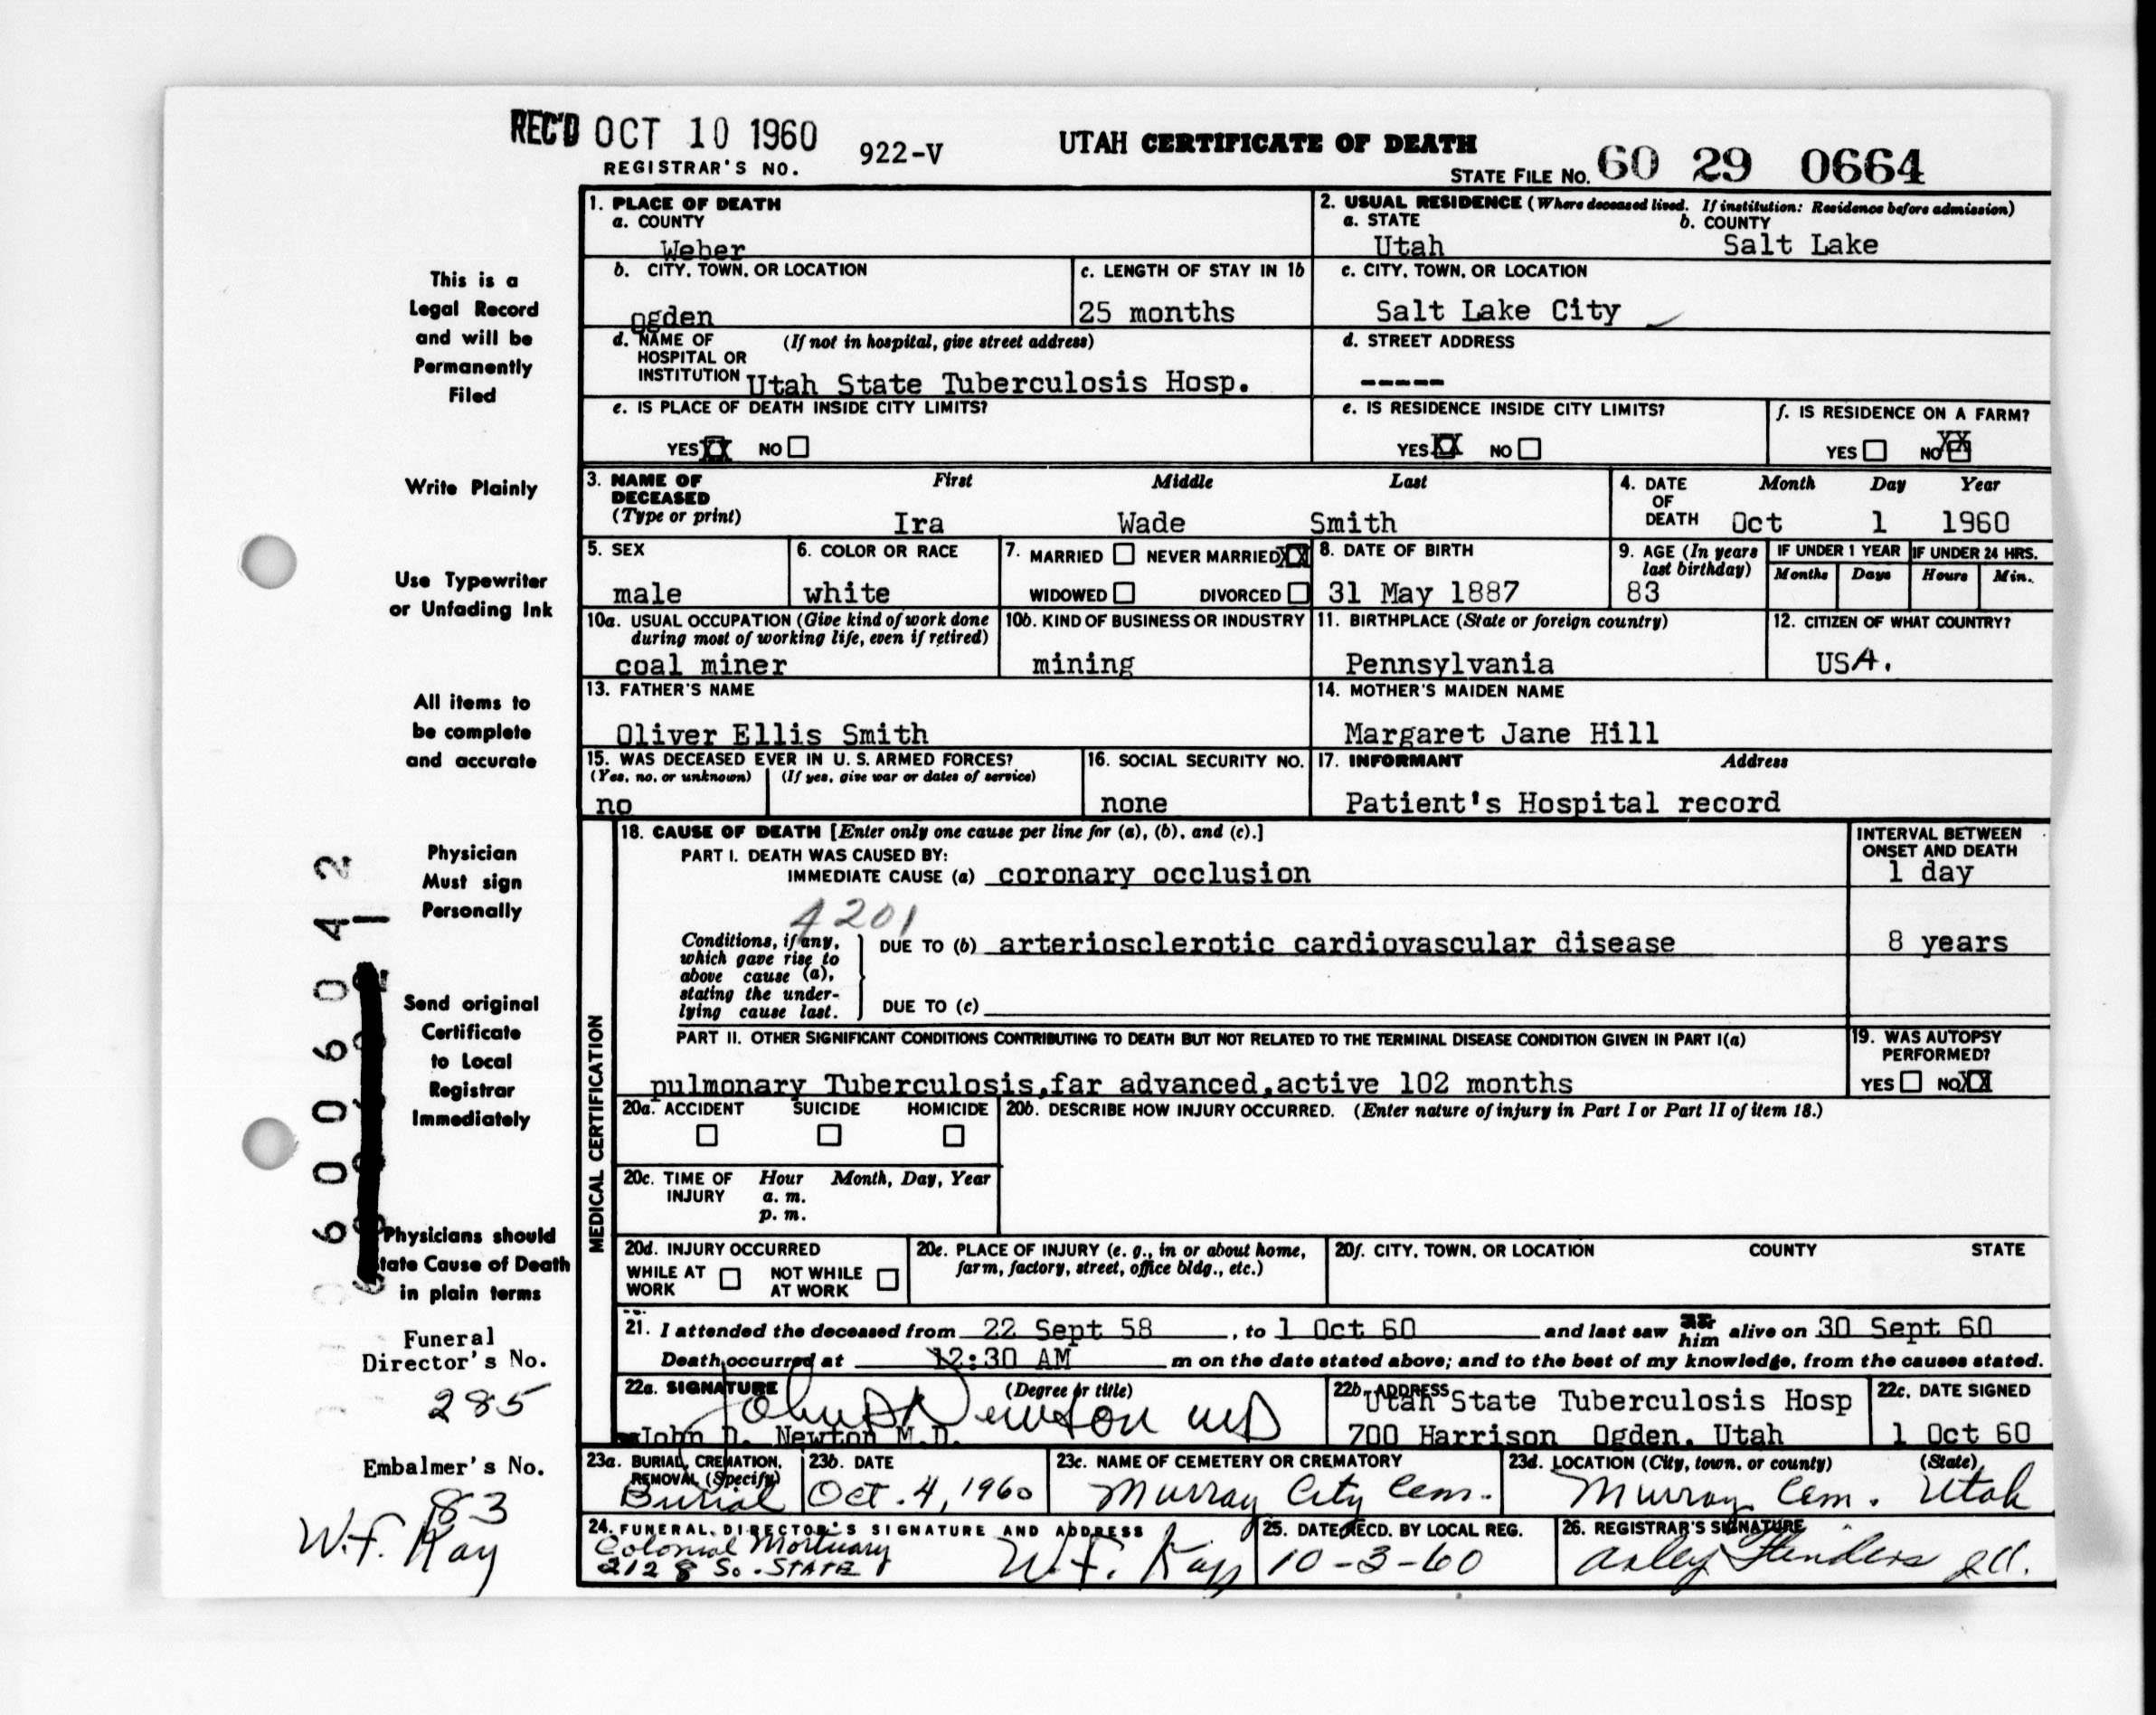 REC'D OCT 10 1960
REGISTRAR'S NO. 922-V
UTAH CERTIFICATE OF DEATH
STATE FILE NO. 60 29 0664
This is a
Legal Record
and will be
Permanently
Filed
Write Plainly
Use Typewriter
or Unfading Ink
All items to
be complete
and accurate
Physician
Must sign
Personally
Send original
Certificate
to Local
Registrar
Immediately
Physicians should
State Cause of Death
in plain terms
Funeral
Director's No.
285
Embalmer's No.
83
W.F. Kay
60060412
1. PLACE OF DEATH
a. COUNTY
Weber
2. USUAL RESIDENCE (Where deceased lived. If institution: Residence before admission)
a. STATE b. COUNTY
Utah Salt Lake
b. CITY, TOWN, OR LOCATION
ogden
c. LENGTH OF STAY IN 1b
25 months
c. CITY, TOWN, OR LOCATION
Salt Lake City
d. NAME OF (If not in hospital, give street address)
HOSPITAL OR
INSTITUTION Utah State Tuberculosis Hosp.
d. STREET ADDRESS
-----
e. IS PLACE OF DEATH INSIDE CITY LIMITS?
YES XX NO
e. IS RESIDENCE INSIDE CITY LIMITS?
YES XX NO
f. IS RESIDENCE ON A FARM?
YES NO XX
3. NAME OF First Middle Last
DECEASED
(Type or print) Ira Wade Smith
4. DATE Month Day Year
OF
DEATH Oct 1 1960
5. SEX
male
6. COLOR OR RACE
white
7. MARRIED NEVER MARRIED XX
WIDOWED DIVORCED
8. DATE OF BIRTH
31 May 1887
9. AGE (In years
last birthday)
83
IF UNDER 1 YEAR IF UNDER 24 HRS.
Months Days Hours Min.
10a. USUAL OCCUPATION (Give kind of work done
during most of working life, even if retired)
coal miner
10b. KIND OF BUSINESS OR INDUSTRY
mining
11. BIRTHPLACE (State or foreign country)
Pennsylvania
12. CITIZEN OF WHAT COUNTRY?
USA.
13. FATHER'S NAME
Oliver Ellis Smith
14. MOTHER'S MAIDEN NAME
Margaret Jane Hill
15. WAS DECEASED EVER IN U. S. ARMED FORCES?
(Yes, no, or unknown) (If yes, give war or dates of service)
no
16. SOCIAL SECURITY NO.
none
17. INFORMANT Address
Patient's Hospital record
MEDICAL CERTIFICATION
18. CAUSE OF DEATH [Enter only one cause per line for (a), (b), and (c).]
PART I. DEATH WAS CAUSED BY:
IMMEDIATE CAUSE (a) coronary occlusion
INTERVAL BETWEEN
ONSET AND DEATH
1 day
4201
Conditions, if any,
which gave rise to
above cause (a),
stating the under-
lying cause last.
DUE TO (b) arteriosclerotic cardiovascular disease
8 years
DUE TO (c)
PART II. OTHER SIGNIFICANT CONDITIONS CONTRIBUTING TO DEATH BUT NOT RELATED TO THE TERMINAL DISEASE CONDITION GIVEN IN PART I(a)
pulmonary Tuberculosis,far advanced,active 102 months
19. WAS AUTOPSY
PERFORMED?
YES NO XX
20a. ACCIDENT SUICIDE HOMICIDE
20b. DESCRIBE HOW INJURY OCCURRED. (Enter nature of injury in Part I or Part II of item 18.)
20c. TIME OF Hour Month, Day, Year
INJURY a. m.
p. m.
20d. INJURY OCCURRED
WHILE AT NOT WHILE
WORK AT WORK
20e. PLACE OF INJURY (e. g., in or about home,
farm, factory, street, office bldg., etc.)
20f. CITY, TOWN, OR LOCATION COUNTY STATE
21. I attended the deceased from 22 Sept 58, to 1 Oct 60 and last saw him alive on 30 Sept 60
Death occurred at 12:30 AM m on the date stated above; and to the best of my knowledge, from the causes stated.
22a. SIGNATURE (Degree or title)
John D Newton MD
John D. Newton M.D.
22b. ADDRESS Utah State Tuberculosis Hosp
700 Harrison Ogden, Utah
22c. DATE SIGNED
1 Oct 60
23a. BURIAL, CREMATION,
REMOVAL (Specify)
Burial
23b. DATE
Oct. 4, 1960
23c. NAME OF CEMETERY OR CREMATORY
Murray City Cem.
23d. LOCATION (City, town, or county) (State)
Murray Cem. Utah
24. FUNERAL DIRECTOR'S SIGNATURE AND ADDRESS
Colonial Mortuary
2128 So. STATE W.F. Kay
25. DATE RECD. BY LOCAL REG.
10-3-60
26. REGISTRAR'S SIGNATURE